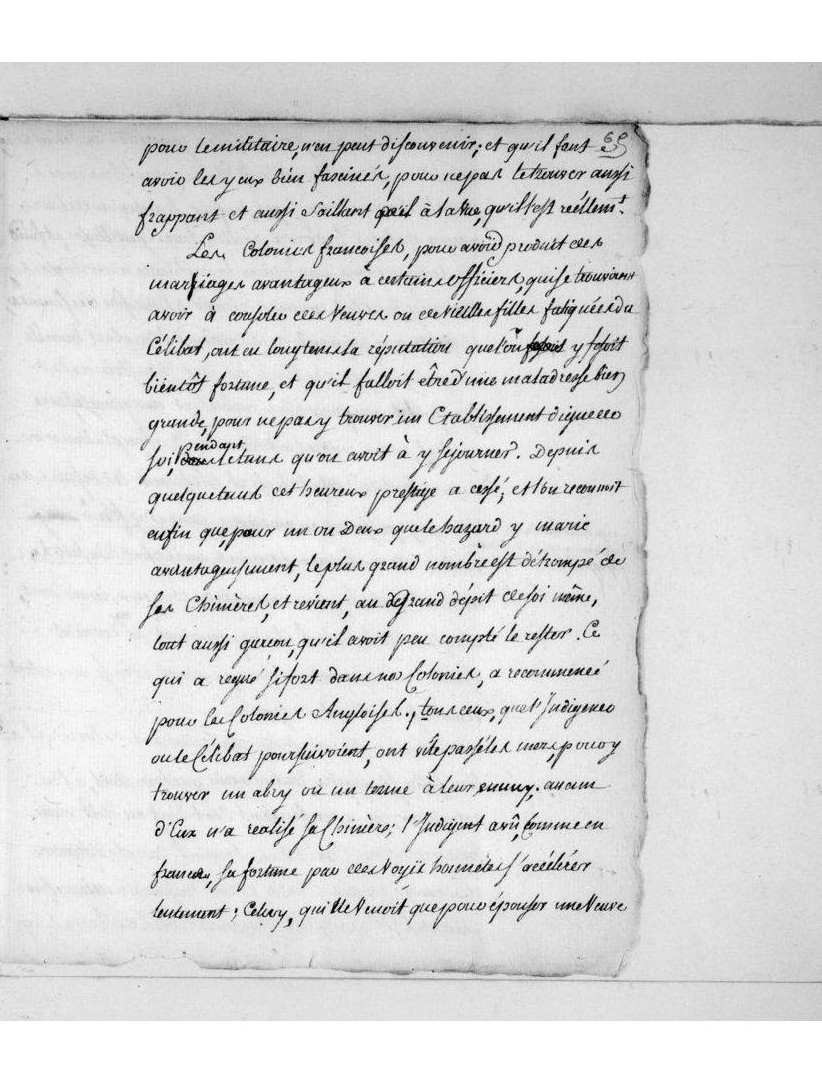 65
pour le militaire, n'en peut disconvenir; et qu'il faut
avoir les yeux bien fascinés, pour ne pas le trouver aussi
frappant et aussi saillant à la vue, qu'il est réellemt.
Les Colonies francoises, pour avoir produit des
marriages avantageux à certains officiers, qui se trouvoient
avoir à consoler des Veuves ou de vieilles filles fatiguées du
Célibat, ont eu longtems la réputation que l'on y fesoit
bientôt fortune, et qu'il falloit être d'une maladresse bien
grande, pour ne pas y trouver un Etablissement digne de
soi, pendant le tans qu'on avoit à y séjourner. Depuis
quelque tans cet heureux prestige a cessé; et l'on reconnoit
enfin que, pour un ou Deux que le hazard y marie
avantageusement, le plus grand nombre est détrompé de
ses Chimères, et revient, au grand dépit de soi même,
tout aussi garcon, qu'il avoit peu compté le rester. Ce
qui a regné si fort dans nos Colonies, a recommencé
pour les Colonies Angloises; tous ceux, que l'Indigence
ou le Célibat poursuivoient, ont vîte passé les mers, pour y
trouver un abry ou un terme à leur ennuy. aucun
d'Eux n'a realisé sa Chimère; l'Indigent a vû, Comme en
france, sa fortune par des Voyes honnêtes s'accélérer
lentement; Celuy, qui ne Venoit que pour épouser une Veuve